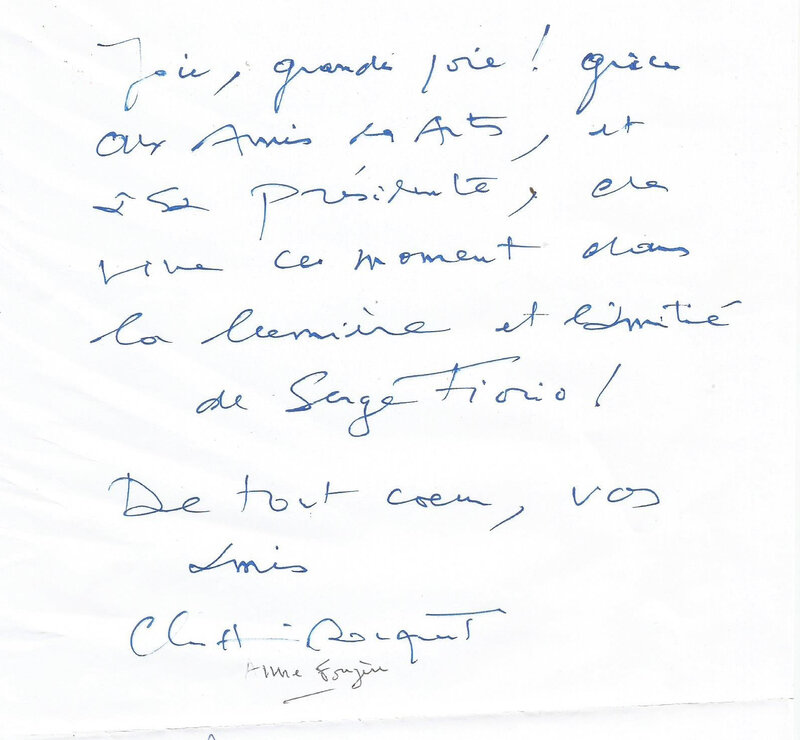 Joie, grande joie ! grâce
aux Amis des Arts, et
à sa présidente, de
vivre ce moment dans
la lumière et l'amitié
de Serge Fiorio !
De tout coeur, vos
amis
Rocquet
Anne Fougère